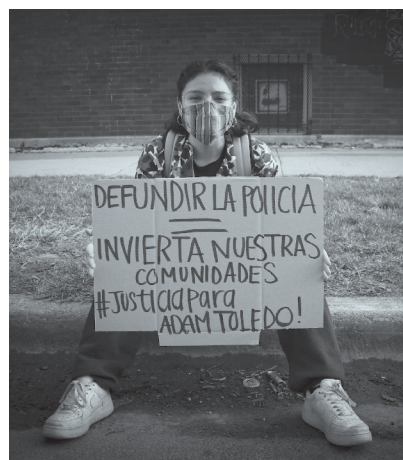 DEFUNDIR LA POLICIA
=
INVIERTA NUESTRAS
COMUNIDADES
#Justicia para
ADAM TOLEDO!